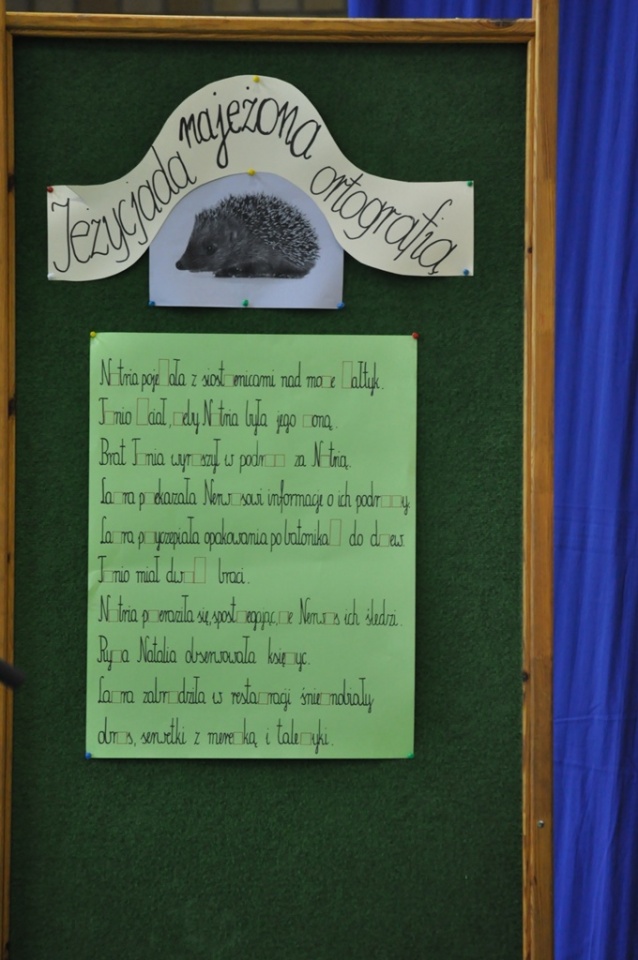 Jeżycjada najeżona ortografią
N□tria poje□ała z siost□enicami nad mo□e □ałtyk.
T□nio □ciał, □eby N□tria była jego □oną.
Brat T□nia wyr□szył w podr□□ za N□trią.
La□ra p□ekazała Nerw□sowi informacje o ich podr□□y.
La□ra p□yczepiała opakowania po batonika□ do d□ew.
T□nio miał dw□□ braci.
N□tria p□eraziła się, spost□egając, □e Nerw□s ich śledzi.
Ry□a Natalia obserwowała księ□yc.
La□ra zabr□dziła w resta□racji śnie□nobiały
obr□s, serwetki z mere□ką i tale□yki.